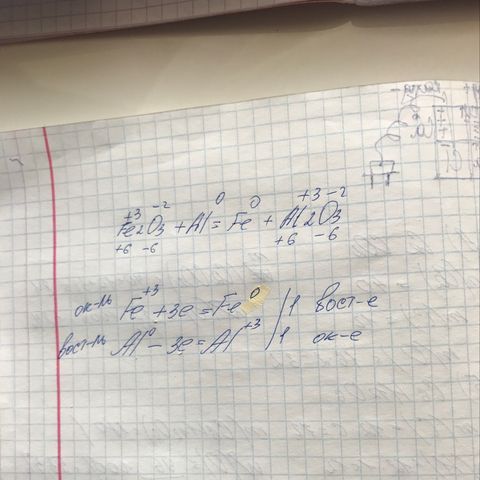 +3 -2 0 0 +3 -2
Fe2O3 + Al = Fe + Al2O3
+6 -6 +6 -6
ок-ль Fe+3 + 3e = Fe0 | 1 вост-е
вост-ль Al0 - 3e = Al+3 | 1 ок-е